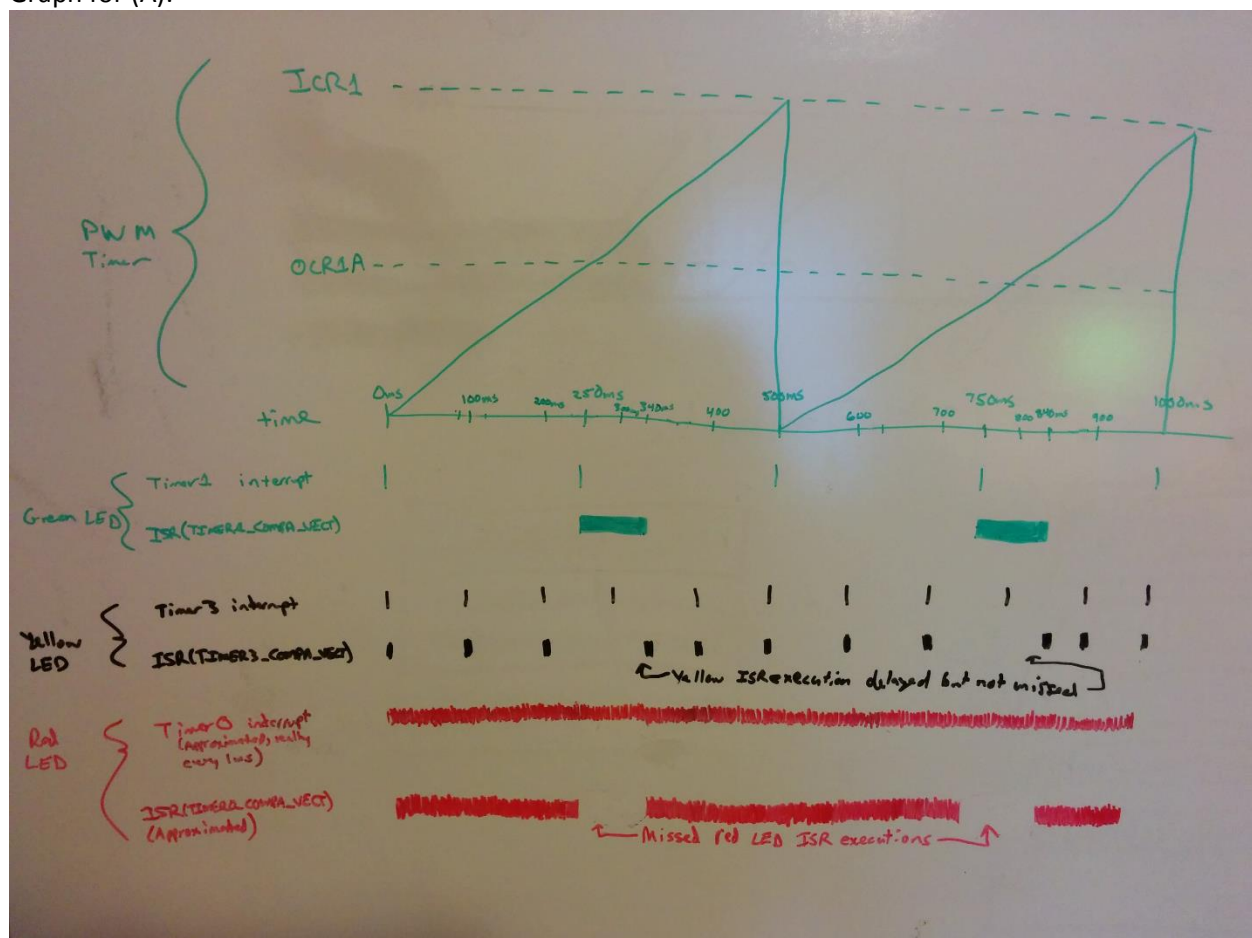 Graph for (A):
ICR1
PWM
Timer
OCR1A
0ms 100ms 200ms 250ms 300ms 340ms 400 500ms 600 700 750ms 800 840ms 900 1000ms
time
Green LED
Timer1 interrupt
ISR(TIMER1_COMPA_VECT)
Yellow
LED
Timer3 interrupt
ISR(TIMER3_COMPA_VECT)
Yellow ISR execution delayed but not missed
Red
LED
Timer0 interrupt
(Approximated, really
every 1ms)
ISR(TIMER0_COMPA_VECT)
(Approximated)
Missed red LED ISR executions